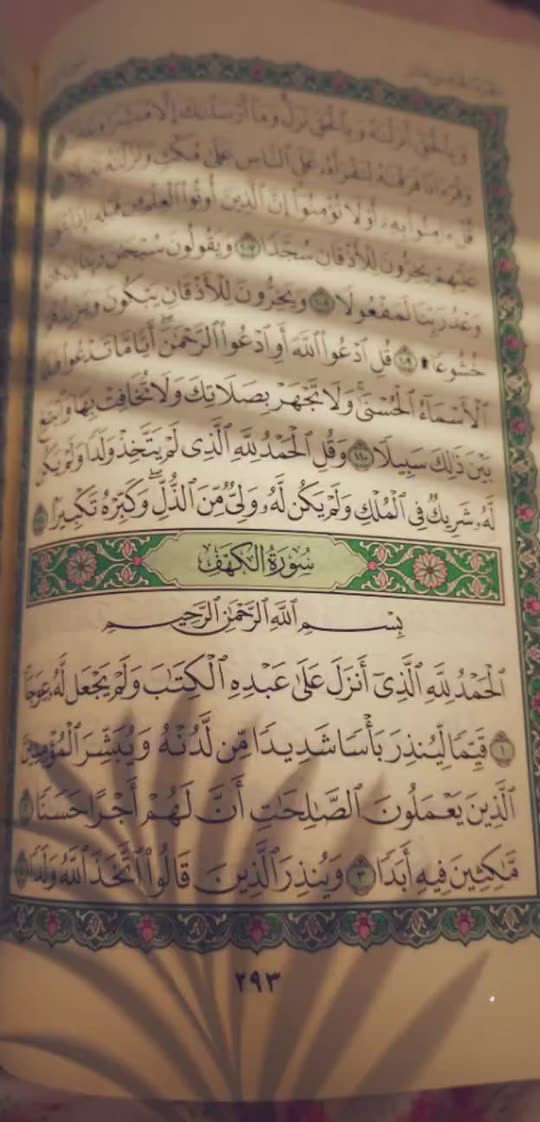 وَبِالْحَقِّ أَنزَلْنَٰهُ وَبِالْحَقِّ نَزَلَ وَمَا أَرْسَلْنَٰكَ إِلَّا مُبَشِّرًا وَنَذِيرًا
وَقُرْءَانًا فَرَقْنَٰهُ لِتَقْرَأَهُۥ عَلَى ٱلنَّاسِ عَلَىٰ مُكْثٍ وَنَزَّلْنَٰهُ تَنزِيلًا
قُلْ ءَامِنُوا۟ بِهِۦٓ أَوْ لَا تُؤْمِنُوٓا۟ إِنَّ ٱلَّذِينَ أُوتُوا۟ ٱلْعِلْمَ مِن قَبْلِهِۦٓ إِذَا يُتْلَىٰ
عَلَيْهِمْ يَخِرُّونَ لِلْأَذْقَانِ سُجَّدًا ١٠٧ وَيَقُولُونَ سُبْحَٰنَ رَبِّنَآ إِن كَانَ
وَعْدُ رَبِّنَا لَمَفْعُولًا ١٠٨ وَيَخِرُّونَ لِلْأَذْقَانِ يَبْكُونَ وَيَزِيدُهُمْ
خُشُوعًا ۩ ١٠٩ قُلِ ٱدْعُوا۟ ٱللَّهَ أَوِ ٱدْعُوا۟ ٱلرَّحْمَٰنَ ۖ أَيًّا مَّا تَدْعُوا۟ فَلَهُ
ٱلْأَسْمَآءُ ٱلْحُسْنَىٰ ۚ وَلَا تَجْهَرْ بِصَلَاتِكَ وَلَا تُخَافِتْ بِهَا وَٱبْتَغِ
بَيْنَ ذَٰلِكَ سَبِيلًا ١١٠ وَقُلِ ٱلْحَمْدُ لِلَّهِ ٱلَّذِى لَمْ يَتَّخِذْ وَلَدًا وَلَمْ يَكُن
لَّهُۥ شَرِيكٌ فِى ٱلْمُلْكِ وَلَمْ يَكُن لَّهُۥ وَلِىٌّ مِّنَ ٱلذُّلِّ ۖ وَكَبِّرْهُ تَكْبِيرًۢا ١١١
سُورَةُ الكَهْفِ
بِسْمِ ٱللَّهِ ٱلرَّحْمَٰنِ ٱلرَّحِيمِ
ٱلْحَمْدُ لِلَّهِ ٱلَّذِىٓ أَنزَلَ عَلَىٰ عَبْدِهِ ٱلْكِتَٰبَ وَلَمْ يَجْعَل لَّهُۥ عِوَجَا
١ قَيِّمًا لِّيُنذِرَ بَأْسًا شَدِيدًا مِّن لَّدُنْهُ وَيُبَشِّرَ ٱلْمُؤْمِنِينَ
ٱلَّذِينَ يَعْمَلُونَ ٱلصَّٰلِحَٰتِ أَنَّ لَهُمْ أَجْرًا حَسَنًا ٢
مَّٰكِثِينَ فِيهِ أَبَدًا ٣ وَيُنذِرَ ٱلَّذِينَ قَالُوا۟ ٱتَّخَذَ ٱللَّهُ وَلَدًا ٤
٢٩٣